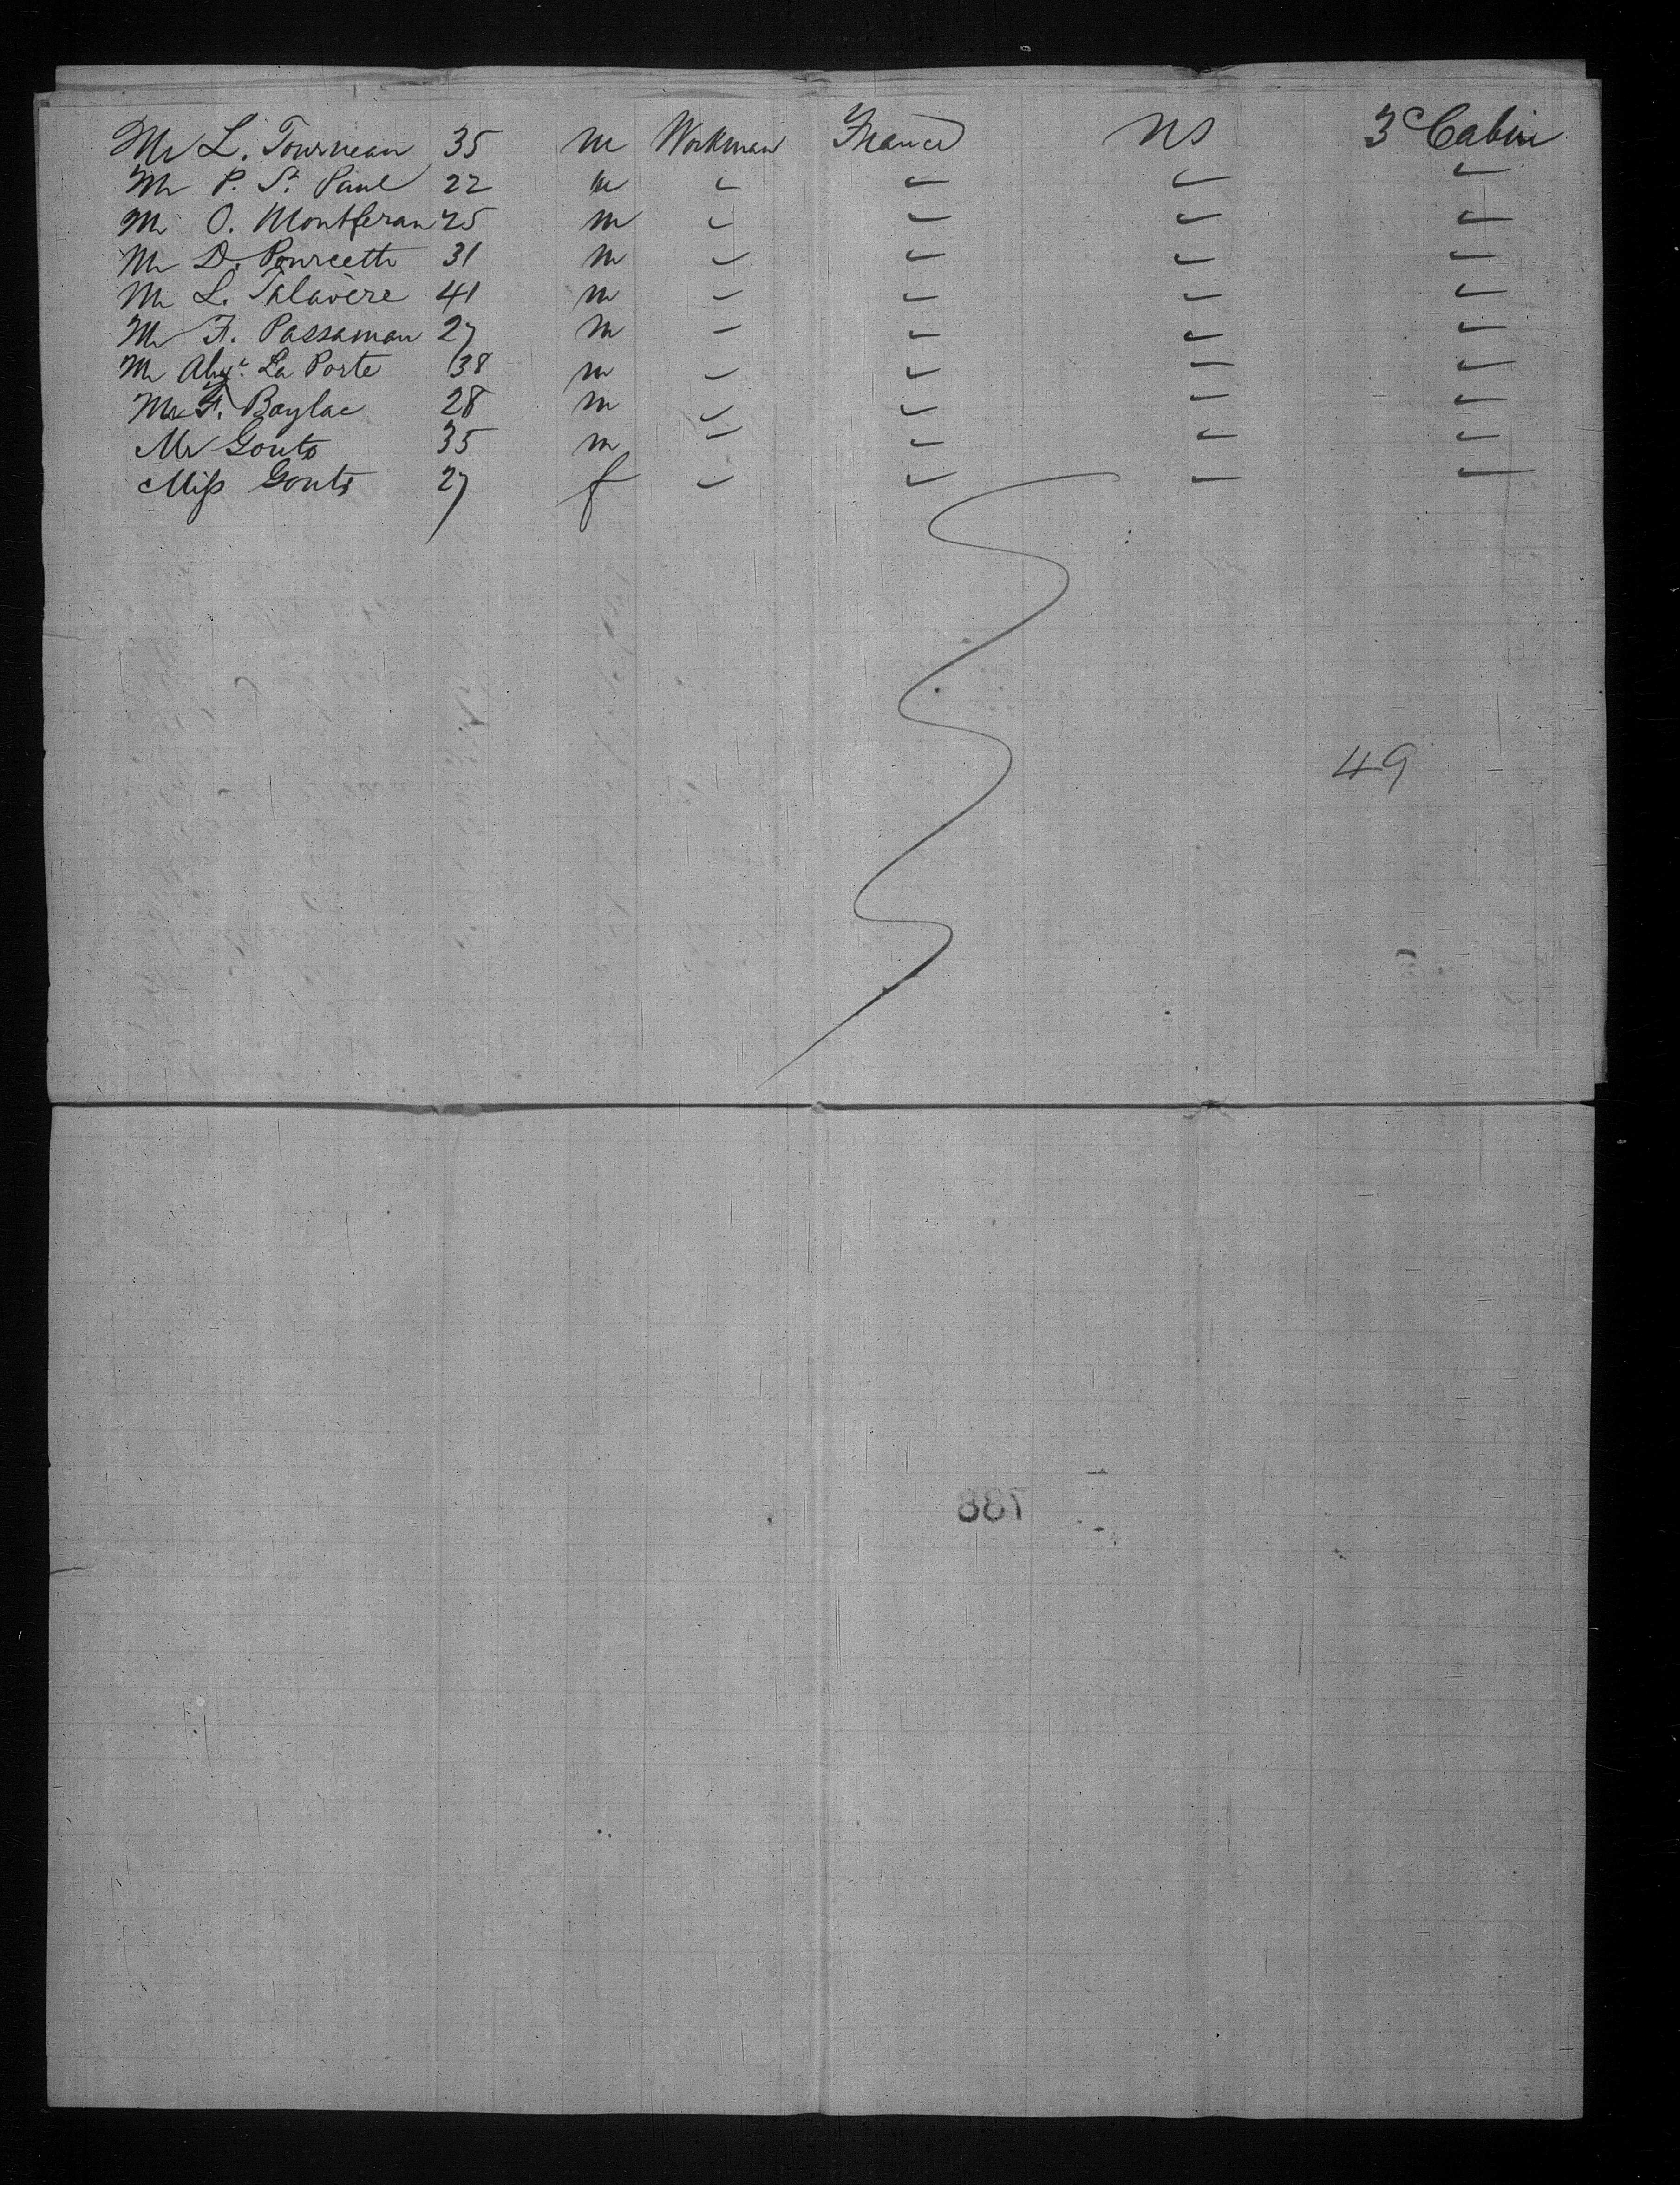 Mr L. Tourneau 35 m Workman France NS 3ᶜ Cabin
Mr P. St. Paul 22 m " " " "
Mr O. Montferan 25 m " " " "
Mr D. Pourcette 31 m " " " "
Mr L. Talavère 41 m " " " "
Mr F. Passaman 27 m " " " "
Mr Alexr. La Porte 38 m " " " "
Mr F. Baylac 28 m " " " "
Mr Gouts 35 m " " " "
Miss Gouts 27 f " " " "
49
788